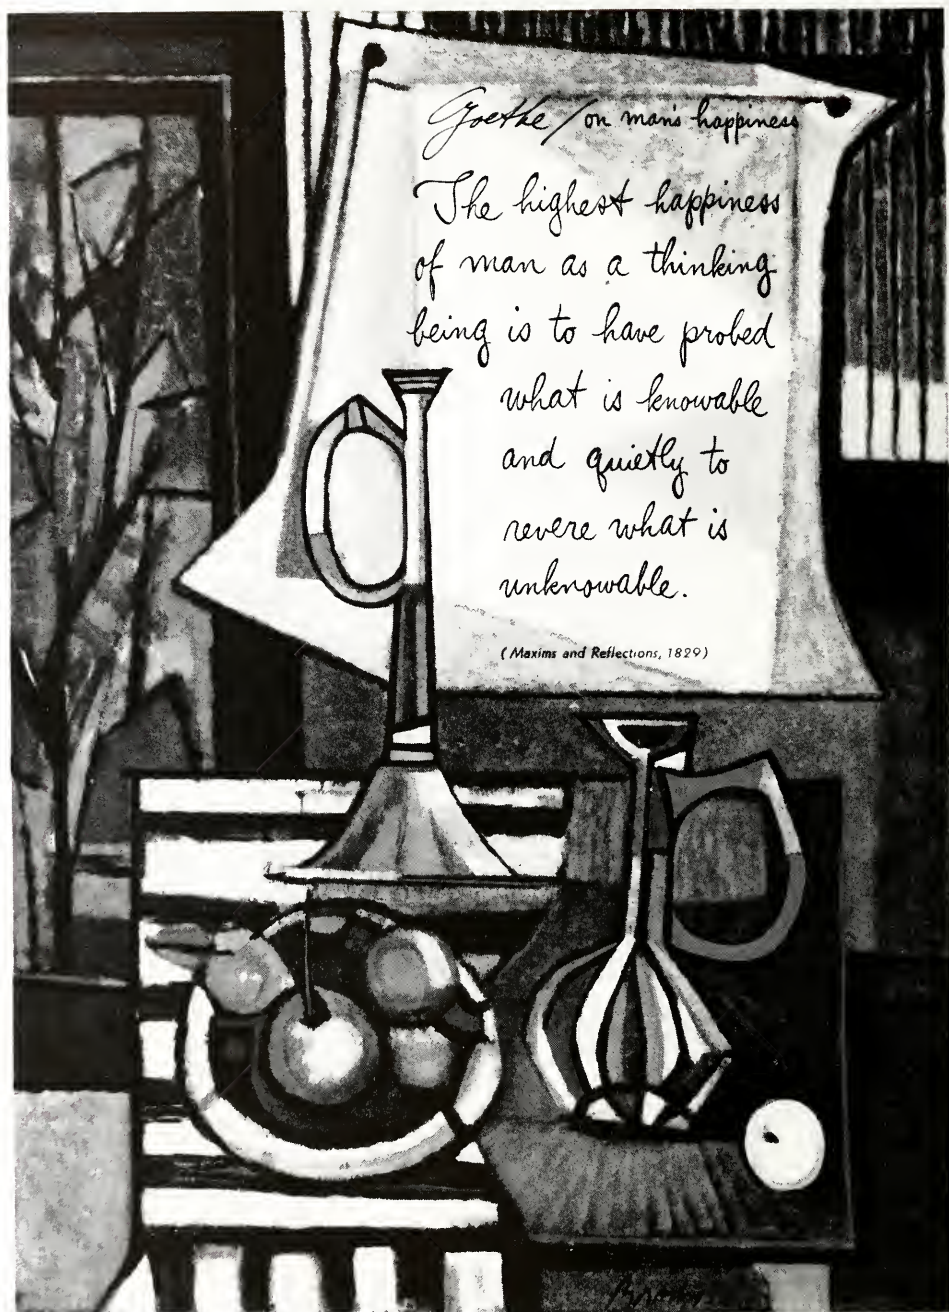 Goethe / on man's happiness
The highest happiness
of man as a thinking
being is to have probed
what is knowable
and quietly to
revere what is
unknowable.
(Maxims and Reflections, 1829)